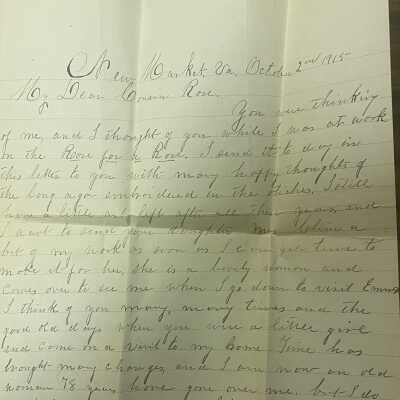 New Market, Va, October 2nd 1915
My Dear Cousin Rose.
You were thinking
of me, and I thought of you while I was at work
on the Rose for a Rose. I send it to day in
this letter to you with many happy thoughts of
the long ago embroidered in the stiches, I still
have a little art left after all these years, and
I want to send your daughter Mrs a
bit of my work as soon as I can get time to
make it for her, she is a lovely woman and
comes over to see me when I go down to visit Emma
I think of you many, many times and the
good old days when you were a little girl
and come on a visit to my home Time has
brought many changes, and I am now an old
woman 78 years have gone over me, but I do